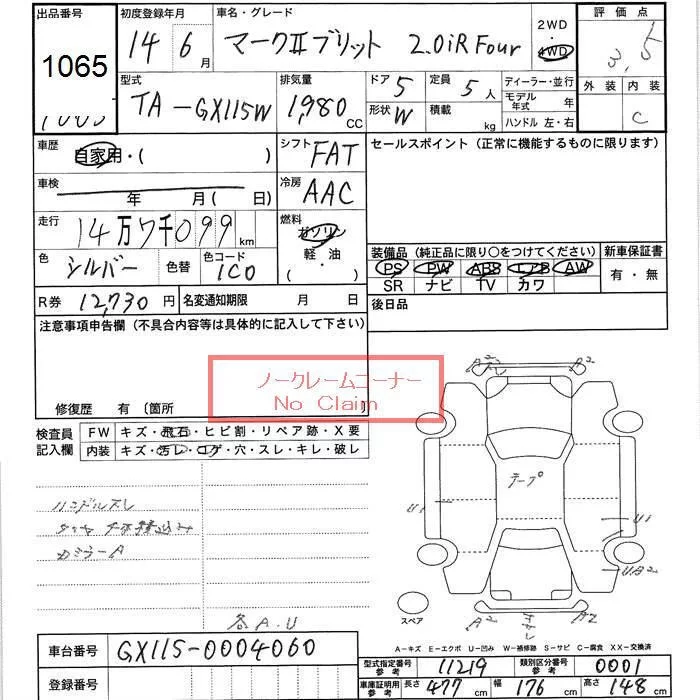 出品番号 初度登録年月 車名・グレード 2WD 評価点
1065 14 6月 マークⅡブリット 2.0iR Four 4WD 3.5
型式 排気量 ドア 5 定員 5人 ディーラー・並行 外装 内装
TA-GX115W 1,980CC 形状 W 積載 kg モデル年式 年 C
ハンドル 左・右
車歴 自家用・( ) シフト FAT セールスポイント (正常に機能するものに限ります)
車検 年 月( 日) 冷房 AAC
走行 14万7千099km 燃料 ガソリン
軽・油
( ・ )
色 シルバー 色替 色コード 1C0
装備品 (純正品に限り○をつけてください) 新車保証書
PS PW ABS エアB AW 有・無
SR ナビ TV カワ
R券 12,730円 名変通知期限 月 日 後日品
注意事項申告欄 (不具合内容等は具体的に記入して下さい)
ノークレームコーナー
No Claim
修復歴 有 (箇所
検査員記入欄 FW キズ・飛石・ヒビ割・リペア跡・X要
内装 キズ・汚レ・コゲ・穴・スレ・キレ・破レ
ハンドルスレ
カミラーA
各A.U
A2 A2
テープ
U1 U1
UA2
スペア A2 A2
A-キズ E-エクボ U-凹み W-補修跡 S-サビ C-腐食 XX-交換済
車台番号 GX115-0004060
登録番号
型式指定番号参考 11219 類別区分番号参考 0001
車庫証明用参考 長さ 477cm 幅 176cm 高さ 148cm